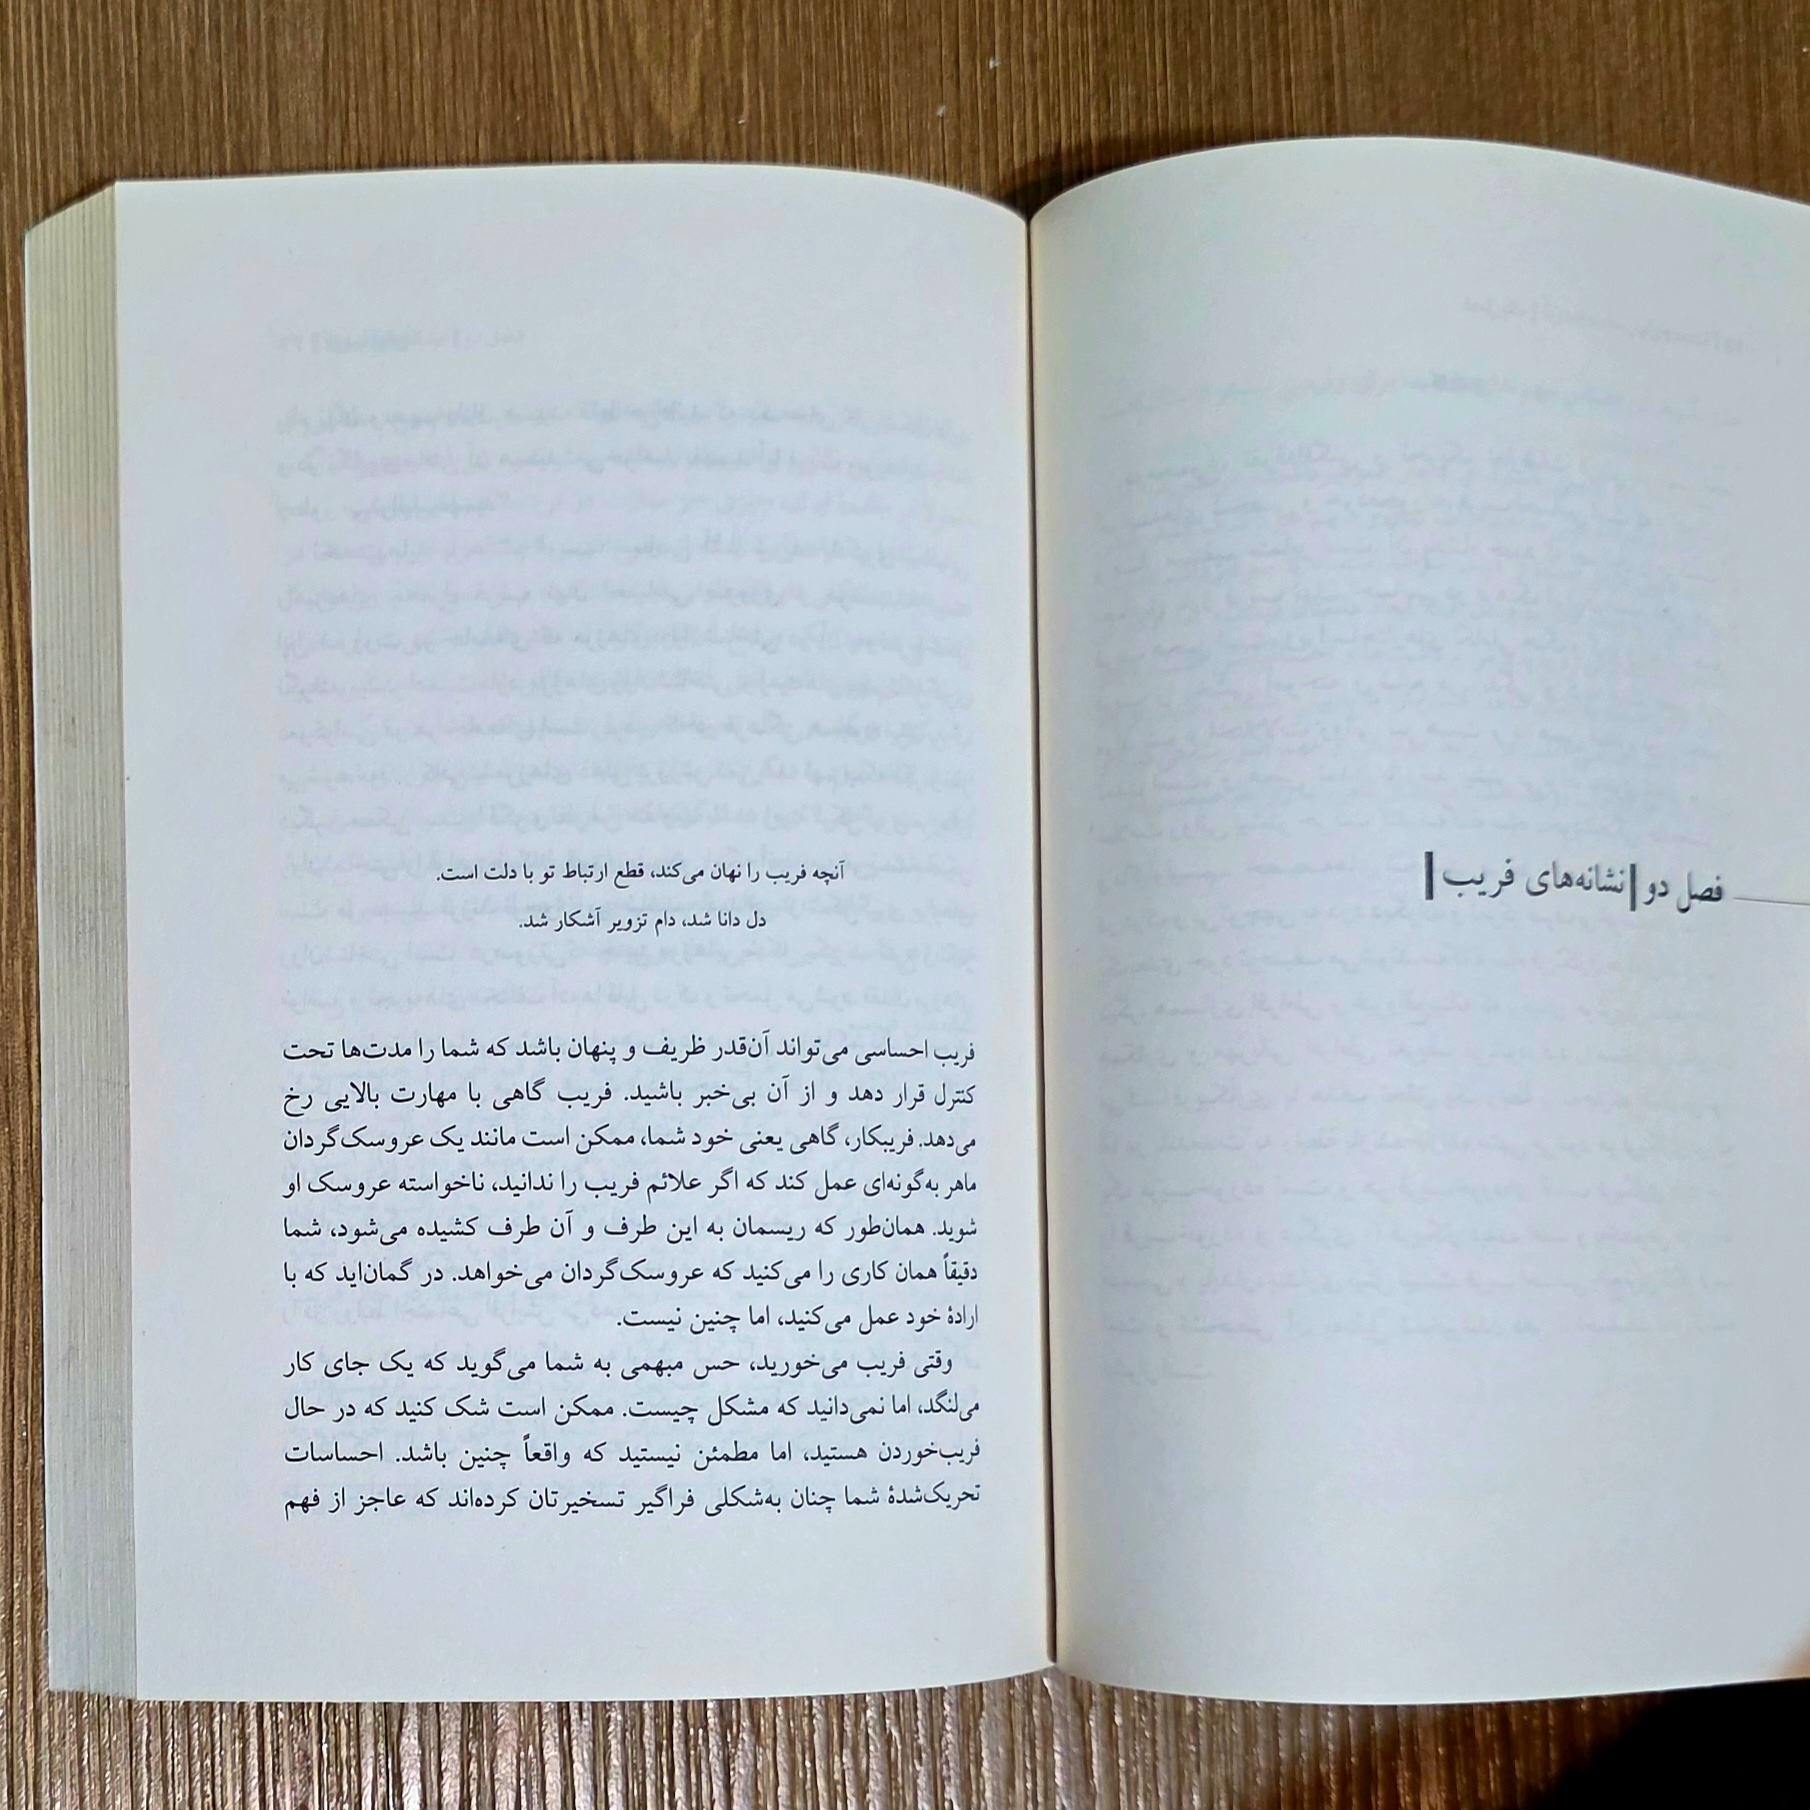 فصل دو | نشانه‌های فریب |
آنچه فریب را نهان می‌کند، قطع ارتباط تو با دلت است.
دل دانا شد، دام تزویر آشکار شد.
فریب احساسی می‌تواند آن‌قدر ظریف و پنهان باشد که شما را مدت‌ها تحت
کنترل قرار دهد و از آن بی‌خبر باشید. فریب گاهی با مهارت بالایی رخ
می‌دهد. فریبکار، گاهی یعنی خود شما، ممکن است مانند یک عروسک‌گردان
ماهر به‌گونه‌ای عمل کند که اگر علائم فریب را ندانید، ناخواسته عروسک او
شوید. همان‌طور که ریسمان به این طرف و آن طرف کشیده می‌شود، شما
دقیقاً همان کاری را می‌کنید که عروسک‌گردان می‌خواهد. در گمان‌اید که با
ارادهٔ خود عمل می‌کنید، اما چنین نیست.
وقتی فریب می‌خورید، حس مبهمی به شما می‌گوید که یک جای کار
می‌لنگد، اما نمی‌دانید که مشکل چیست. ممکن است شک کنید که در حال
فریب‌خوردن هستید، اما مطمئن نیستید که واقعاً چنین باشد. احساسات
تحریک‌شدهٔ شما چنان به‌شکلی فراگیر تسخیرتان کرده‌اند که عاجز از فهم